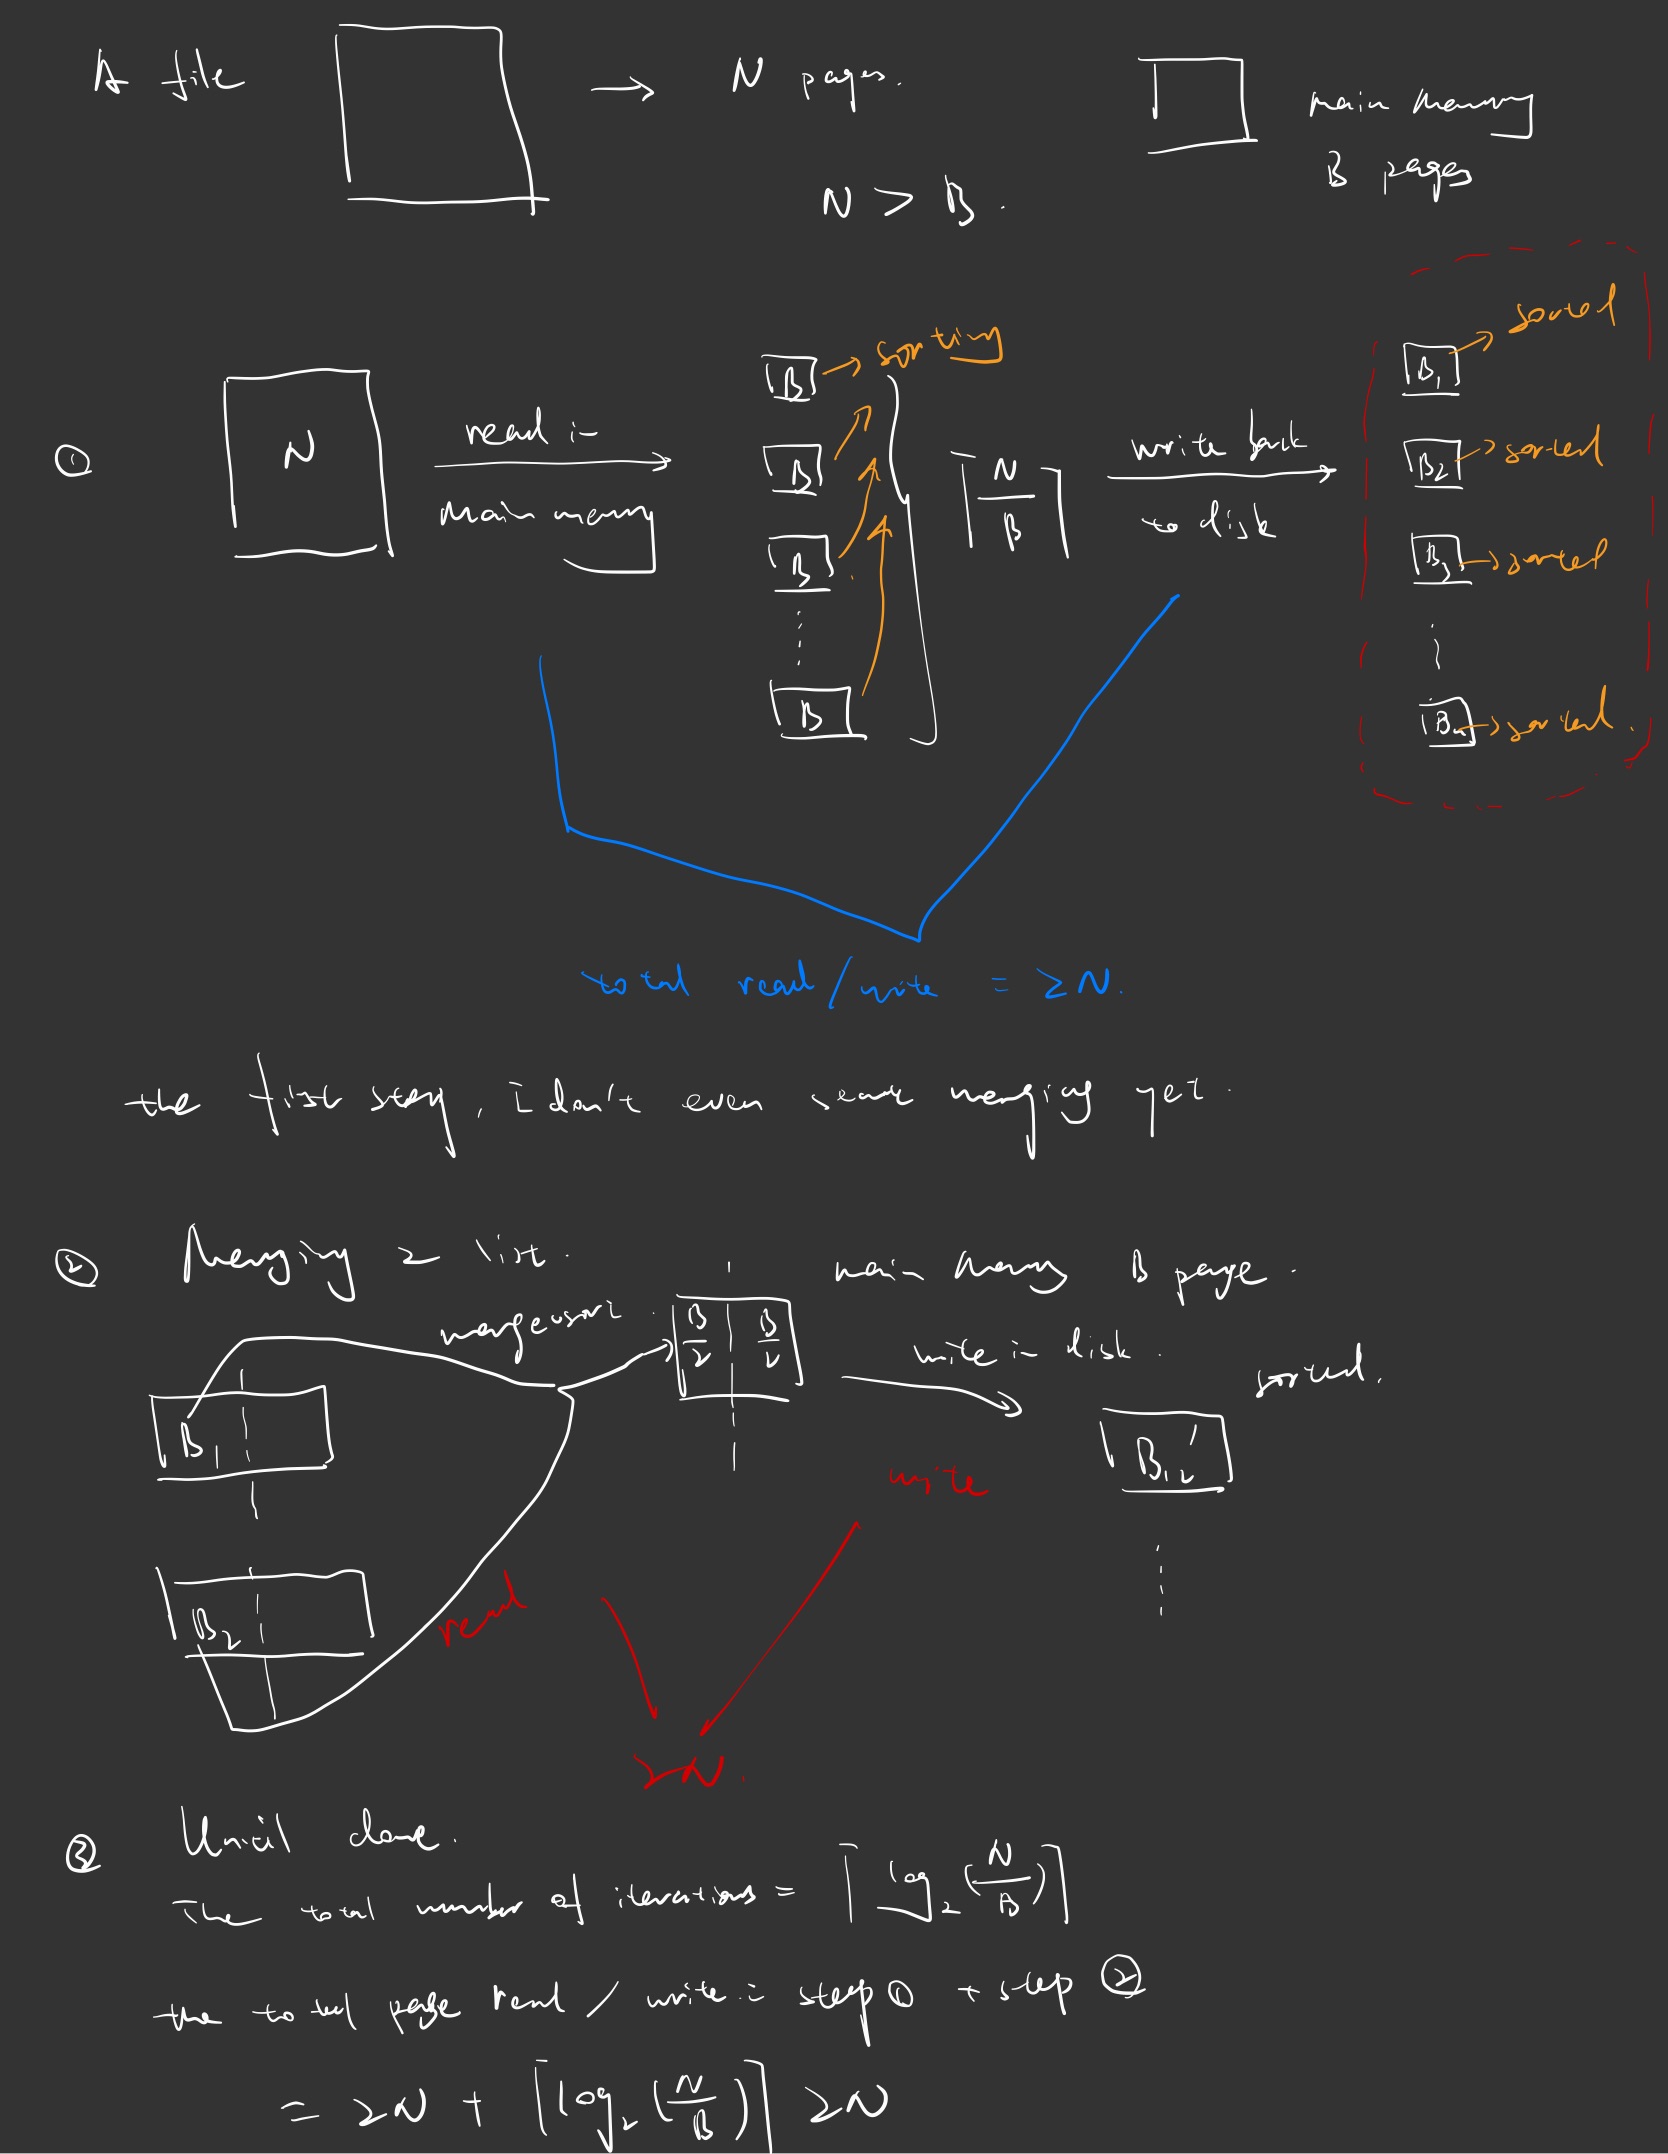 A file → N pages.
main memory
B pages
N > B.
① N
read in
main memory
B → sorting
B
B
B
⌈N/B⌉
write back
to disk
B₁ → sorted
B₂ → sorted
B₃ → sorted
Bₙ → sorted.
total read/write = 2N.
the first step, i don't even start merging yet.
② Merging 2 list.
main memory B page.
mergesort.
B/2 B/2
write in disk.
sorted.
B₁
B₁₂'
write
B₂
read
2N.
③ Until done.
The total number of iterations = ⌈log₂(N/B)⌉
the total page read / write = step ① + step ②
= 2N + ⌈log₂(N/B)⌉ 2N